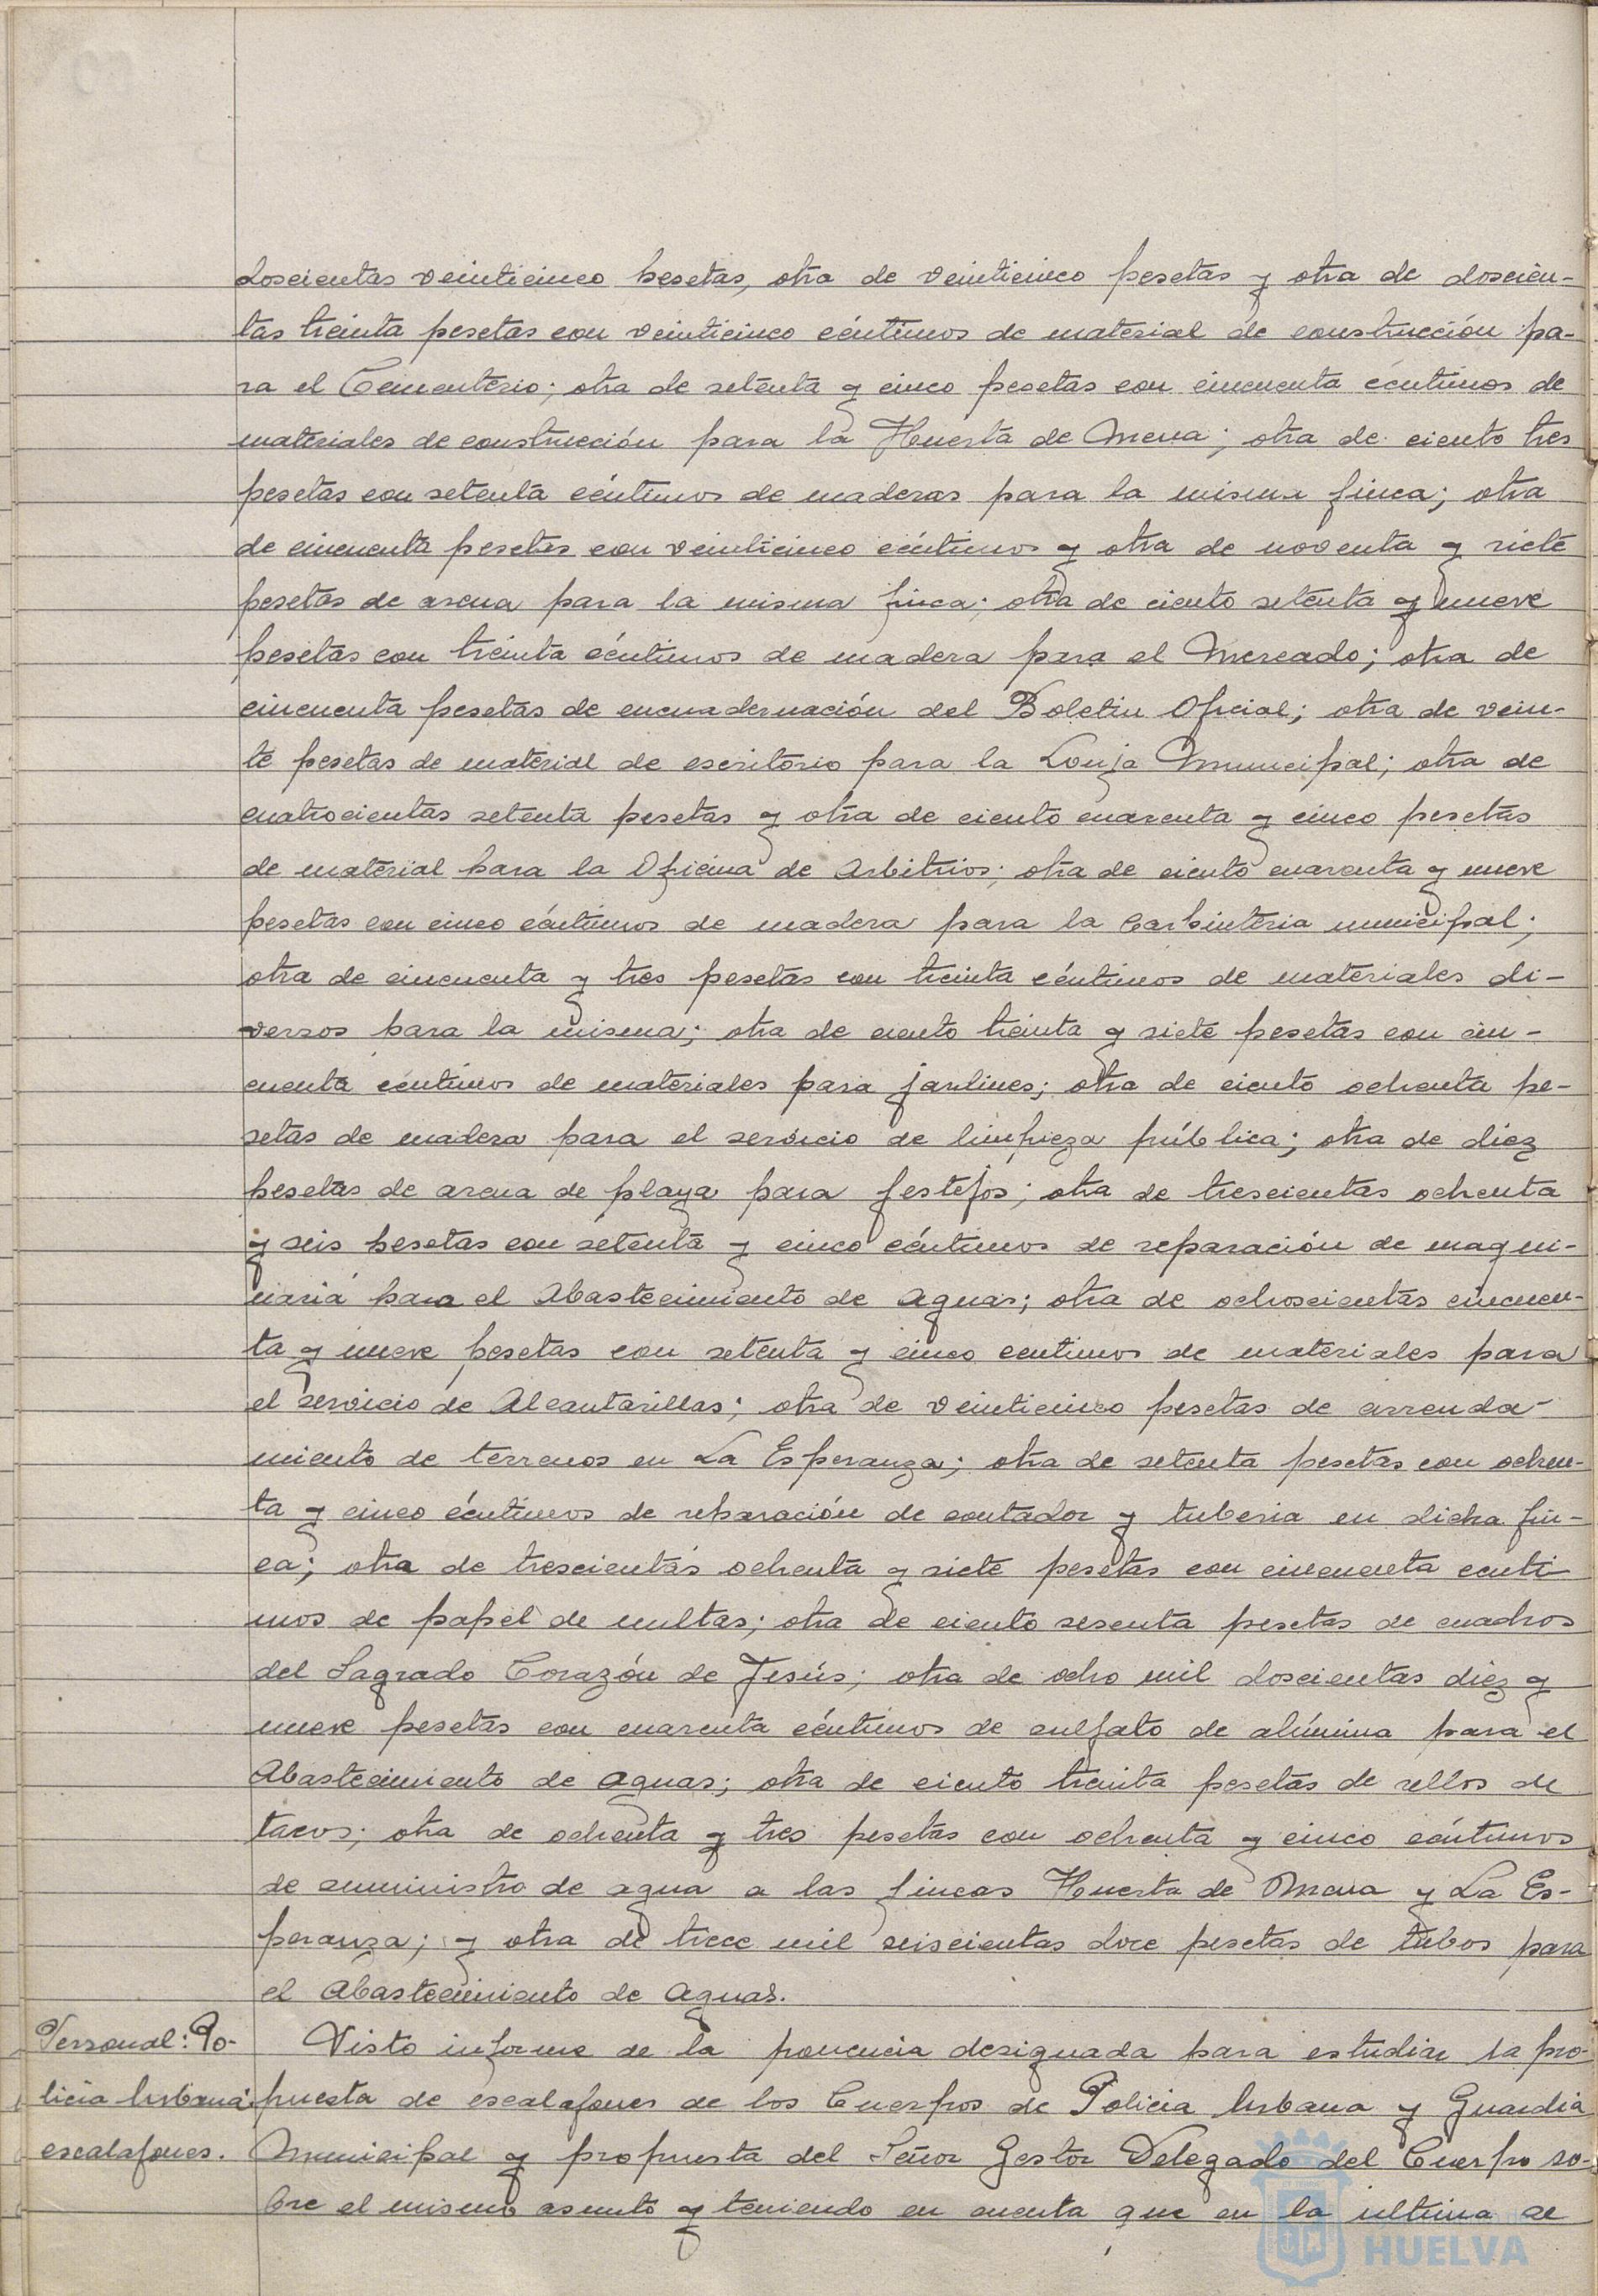 doscientas veinticinco pesetas, otra de veinticinco pesetas y otra de doscien-
tas treinta pesetas con veinticinco céntimos de material de construcción pa-
ra el Cementerio; otra de setenta y cinco pesetas con cincuenta céntimos de
materiales de construcción para la Huerta de Mena; otra de ciento tres
pesetas con setenta céntimos de maderas para la misma finca; otra
de cincuenta pesetas con veinticinco céntimos y otra de noventa y siete
pesetas de arena para la misma finca; otra de ciento setenta y nueve
pesetas con treinta céntimos de madera para el Mercado; otra de
cincuenta pesetas de encuadernación del Boletin Oficial; otra de vein-
te pesetas de material de escritorio para la Lonja Municipal; otra de
cuatrocientas setenta pesetas y otra de ciento cuarenta y cinco pesetas
de material para la Oficina de Arbitrios; otra de ciento cuarenta y nueve
pesetas con cinco céntimos de madera para la Carpinteria municipal;
otra de cincuenta y tres pesetas con treinta céntimos de materiales di-
versos para la misma; otra de ciento treinta y siete pesetas con cin-
cuenta céntimos de materiales para jardines; otra de ciento ochenta pe-
setas de madera para el servicio de limpieza pública; otra de diez
pesetas de arena de playa para festejos; otra de trescientas ochenta
y seis pesetas con setenta y cinco céntimos de reparación de maqui-
naria para el Abastecimiento de Aguas; otra de ochoscientas cincuen-
ta y nueve pesetas con setenta y cinco centimos de materiales para
el servicio de Alcantarillas; otra de veinticinco pesetas de arrenda-
miento de terrenos en La Esperanza; otra de setenta pesetas con ochen-
ta y cinco céntimos de reparación de contador y tuberia en dicha fin-
ca; otra de trescientas ochenta y siete pesetas con cincuenta centi-
mos de papel de multas; otra de ciento sesenta pesetas de cuadros
del Sagrado Corazón de Jesús; otra de ocho mil doscientas diez y
nueve pesetas con cuarenta céntimos de sulfato de alúmina para el
Abastecimiento de Aguas; otra de ciento treinta pesetas de sellos de
tacos; otra de ochenta y tres pesetas con ochenta y cinco céntimos
de suministro de agua a las fincas Huerta de Mena y La Es-
peranza; y otra de trece mil seiscientas doce pesetas de tubos para
el Abastecimiento de Aguas.
Personal: Po-
licia Urbana
escalafones.
Visto informe de la ponencia designada para estudiar la pro-
puesta de escalafones de los Cuerpos de Policia Urbana y Guardia
Municipal y propuesta del Señor Gestor Delegado del Cuerpo so-
bre el mismo asunto y teniendo en cuenta que en la ultima se
HUELVA